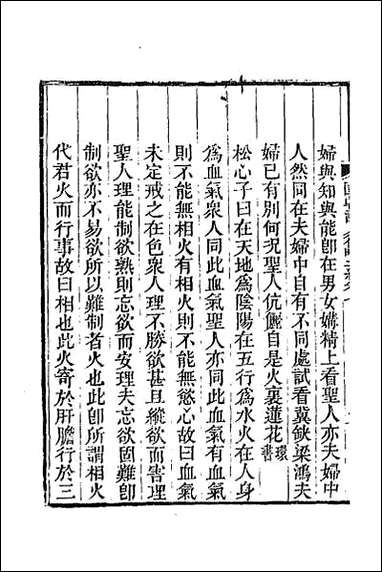 婦與知與能卽在男女媾精上看聖人亦夫婦中
人然同在夫婦中自有不同處試看冀缺梁鴻夫
婦已有別何況聖人伉儷自是火裏蓮花
松心子曰在天地爲陰陽在五行爲水火在人身
爲血氣衆人同此血氣聖人亦同此血氣有血氣
則不能無相火有相火則不能無慾心故曰血氣
未定戒之在色衆人理不勝欲甚且縱欲而害理
聖人理能制欲熟則忘欲而安理夫忘欲固難卽
制欲亦不易欲所以難制者火也此卽所謂相火
代君火而行事故曰相也此火寄於肝膽行於三